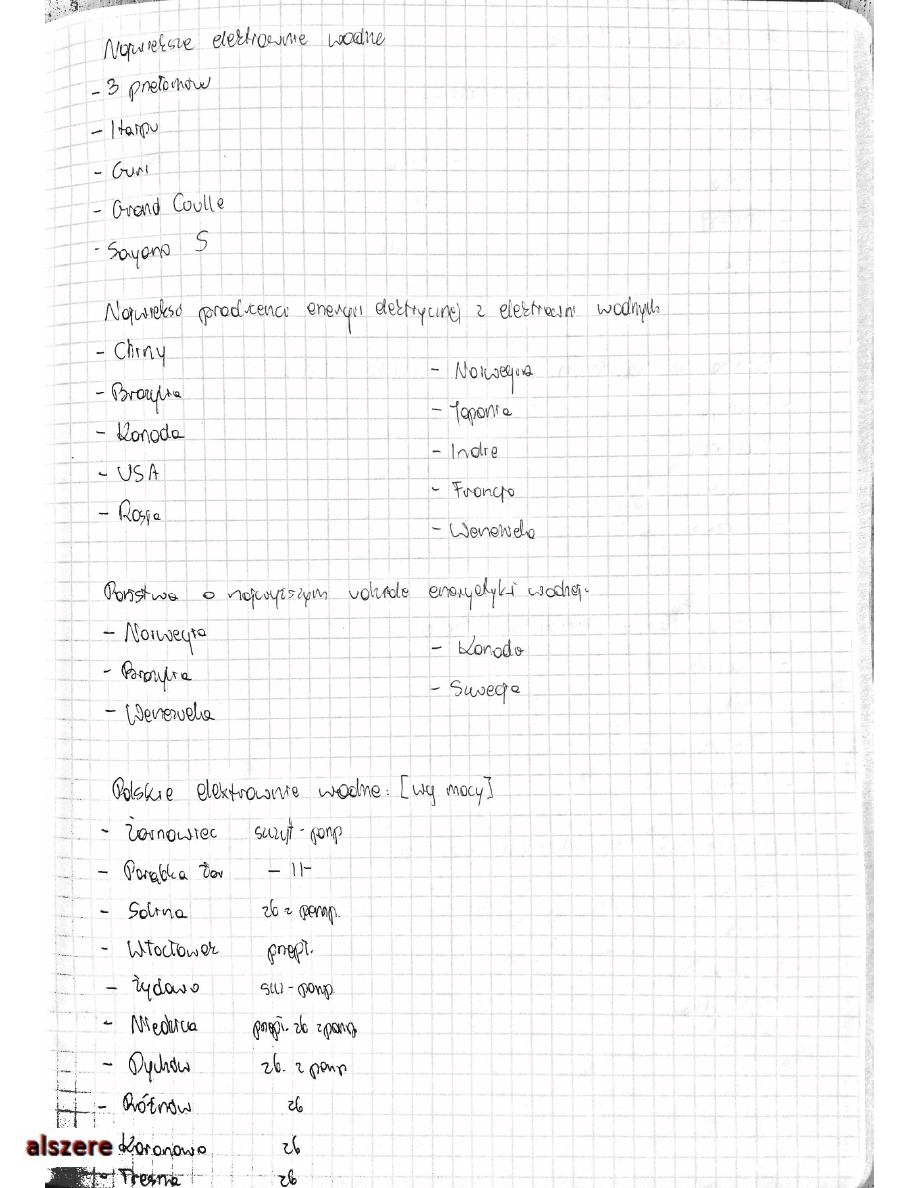 Największe elektrownie wodne
- 3 przełomów
- Itaipu
- Guri
- Grand Coulle
- Sayano S
Najwieksi producenci energii elektrycznej z elektrowni wodnych
- Chiny
- Brazylia
- Kanada
- USA
- Rosja
- Norwegia
- Japonia
- Indie
- Francja
- Wenezuela
Państwa o najwyższym udziale energetyki wodnej:
- Norwegia
- Brazylia
- Wenezuela
- Kanada
- Szwecja
Polskie elektrownie wodne: [wg mocy]
- Żarnowiec szczyt-pomp
- Porąbka Żar - 11-
- Solina zb z pomp.
- Włocławek przepł.
- Żydowo szcz-pomp
- Niedzica przepł. zb z pomp
- Dychów zb. z pomp
- Rożnów zb
- Koronowo zb
- Tresna zb
alszere